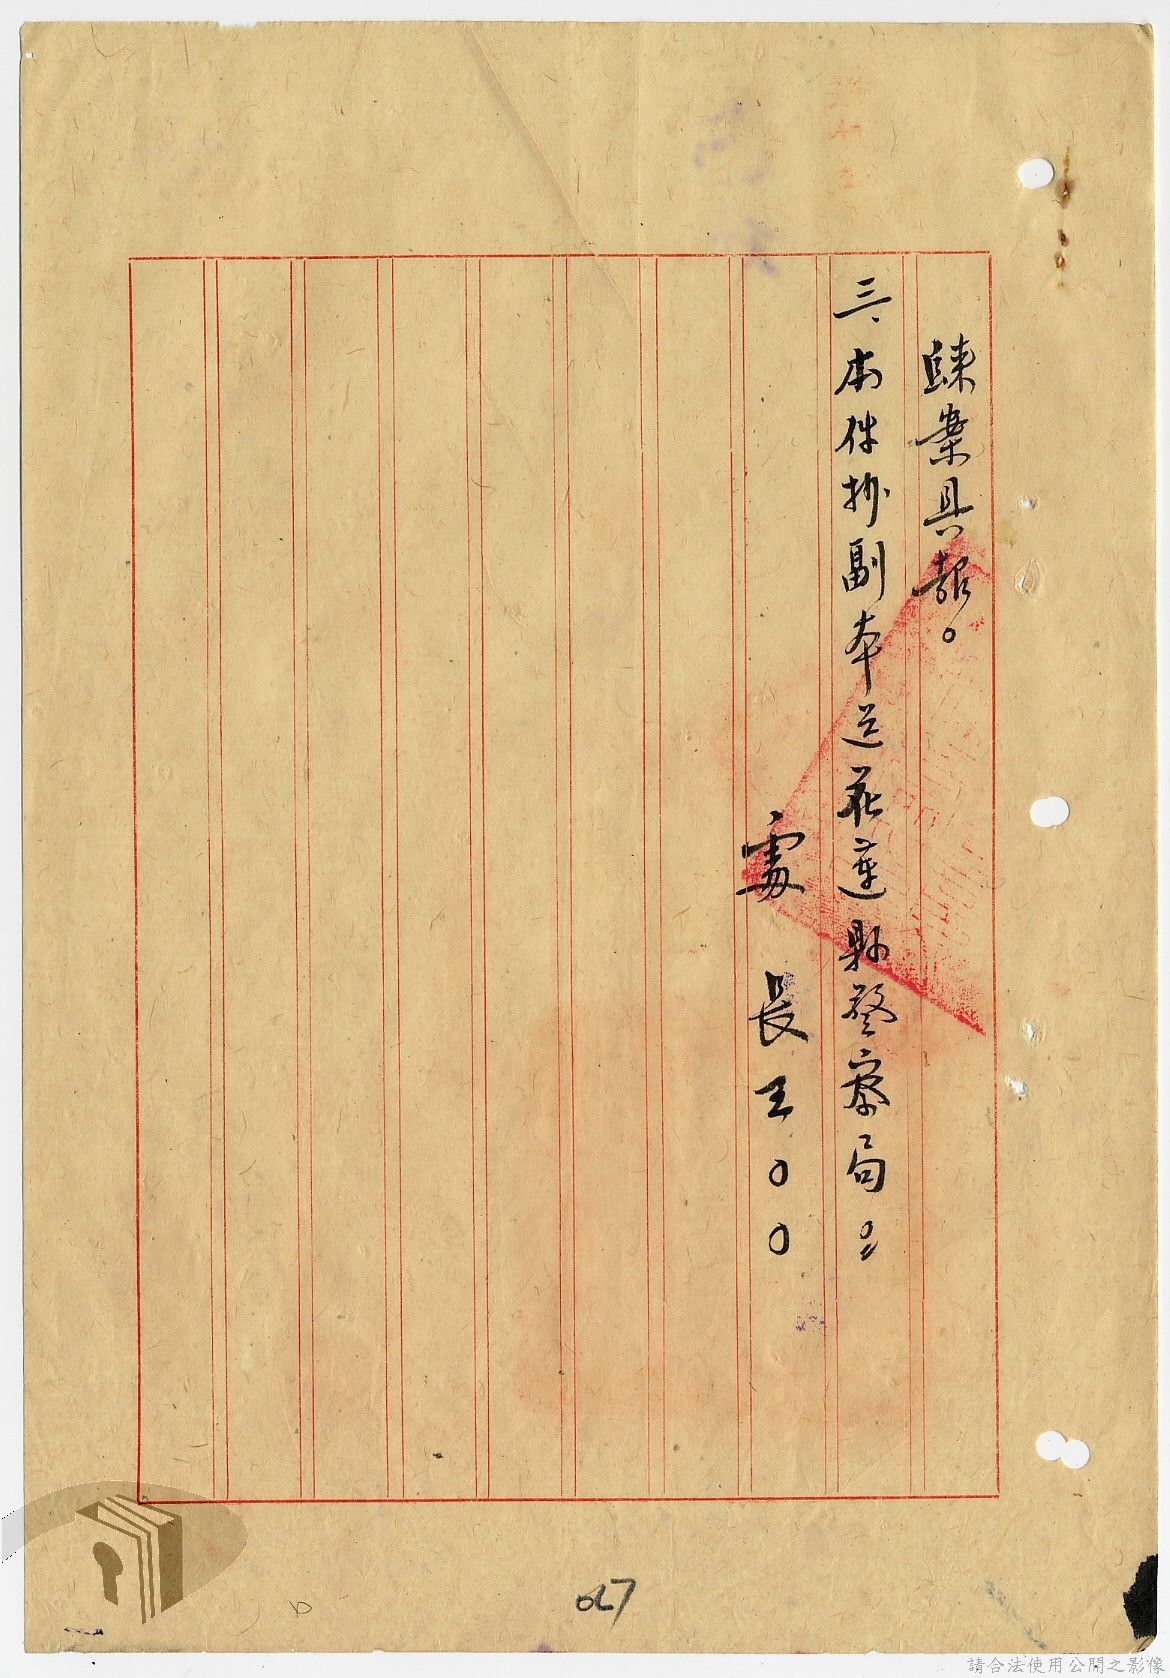 歸案具報。
三、本件抄副本送花蓮縣警察局。
處 長 王 〇 〇
027
請合法使用公開之影像